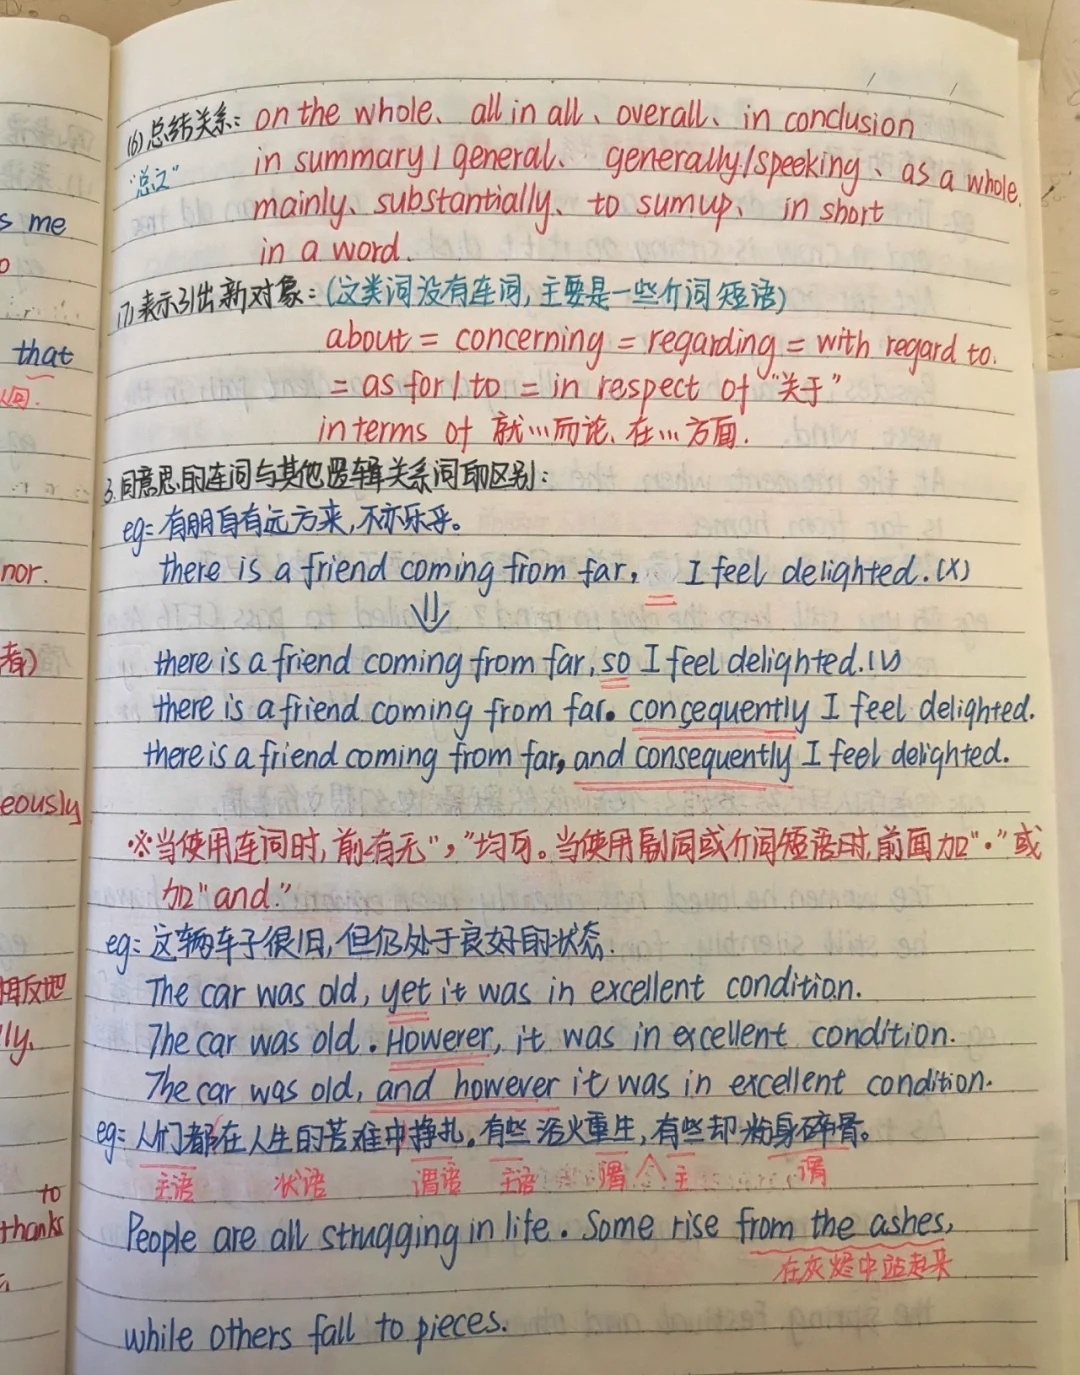 s me
that
nor.
者)
eously
相反地
ly.
to
thanks
(6) 总结关系: on the whole、all in all、overall、in conclusion
"总之" in summary / general、generally/speeking、as a whole.
mainly、substantially、to sum up、in short
in a word.
(7) 表示引出新对象:(这类词没有连词,主要是一些介词短语)
about = concerning = regarding = with regard to.
= as for / to = in respect of "关于"
in terms of 就…而论、在…方面.
3.同意思的连词与其他逻辑关系词取区别:
eg: 有朋自有远方来,不亦乐乎。
there is a friend coming from far, I feel delighted. (X)
⇓
there is a friend coming from far, so I feel delighted.(V)
there is a friend coming from far. consequently I feel delighted.
there is a friend coming from far, and consequently I feel delighted.
※当使用连词时,前有无","均可。当使用副词或介词短语时,前面加"."或
加"and."
eg: 这辆车子很旧,但仍处于良好的状态.
The car was old, yet it was in excellent condition.
The car was old. However, it was in excellent condition.
The car was old, and however it was in excellent condition.
eg: 人们都在人生的苦难中挣扎。有些浴火重生,有些却粉身碎骨。
主语 状语 谓语 主语 谓 主 谓
People are all strugging in life. Some rise from the ashes,
在灰烬中站起来
while others fall to pieces.